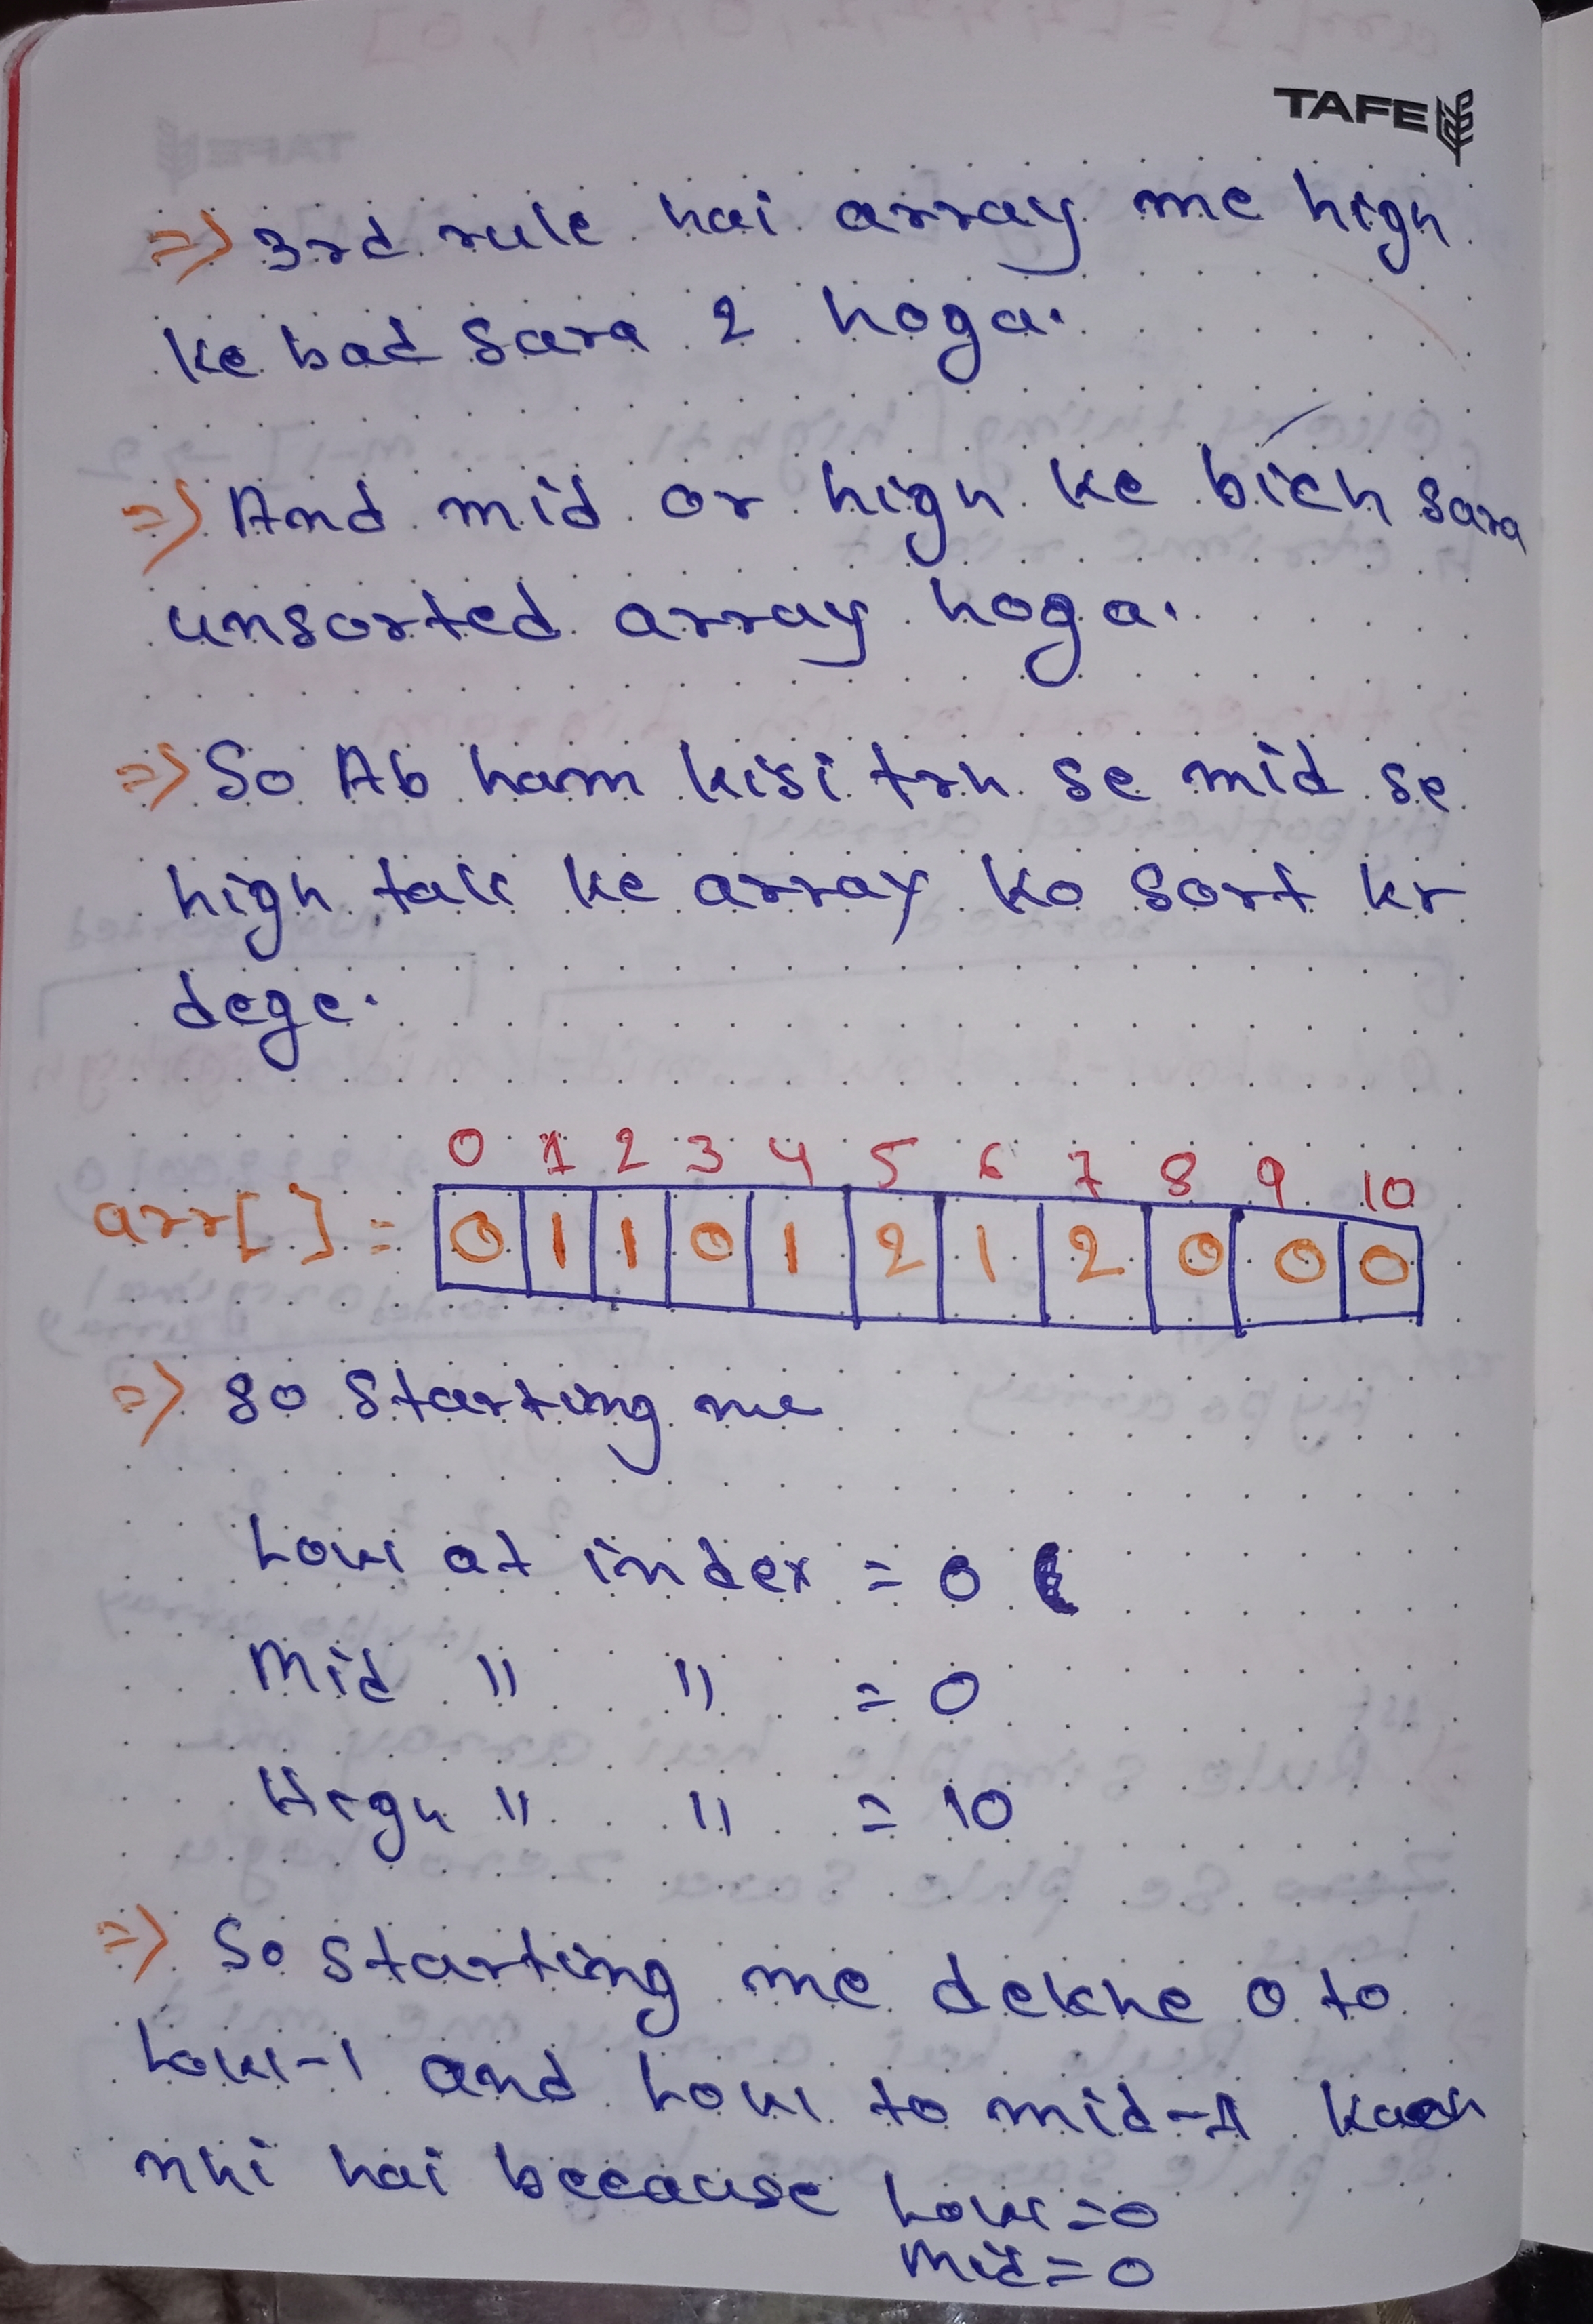 TAFE
=> 3rd rule hai array me high
ke bad sara 2 hoga.
=> And mid or high ke bich sara
unsorted array hoga.
=> So Ab ham kisi trh se mid se
high tak ke array ko sort kr
dege.
0 1 2 3 4 5 6 7 8 9 10
arr[ ] = 0 1 1 0 1 2 1 2 0 0 0
=> so starting me
Low at index = 0
Mid " " = 0
High " " = 10
=> So starting me dekhe 0 to
Low-1 and Low to mid-1 kuch
nhi hai because Low=0
Mid=0